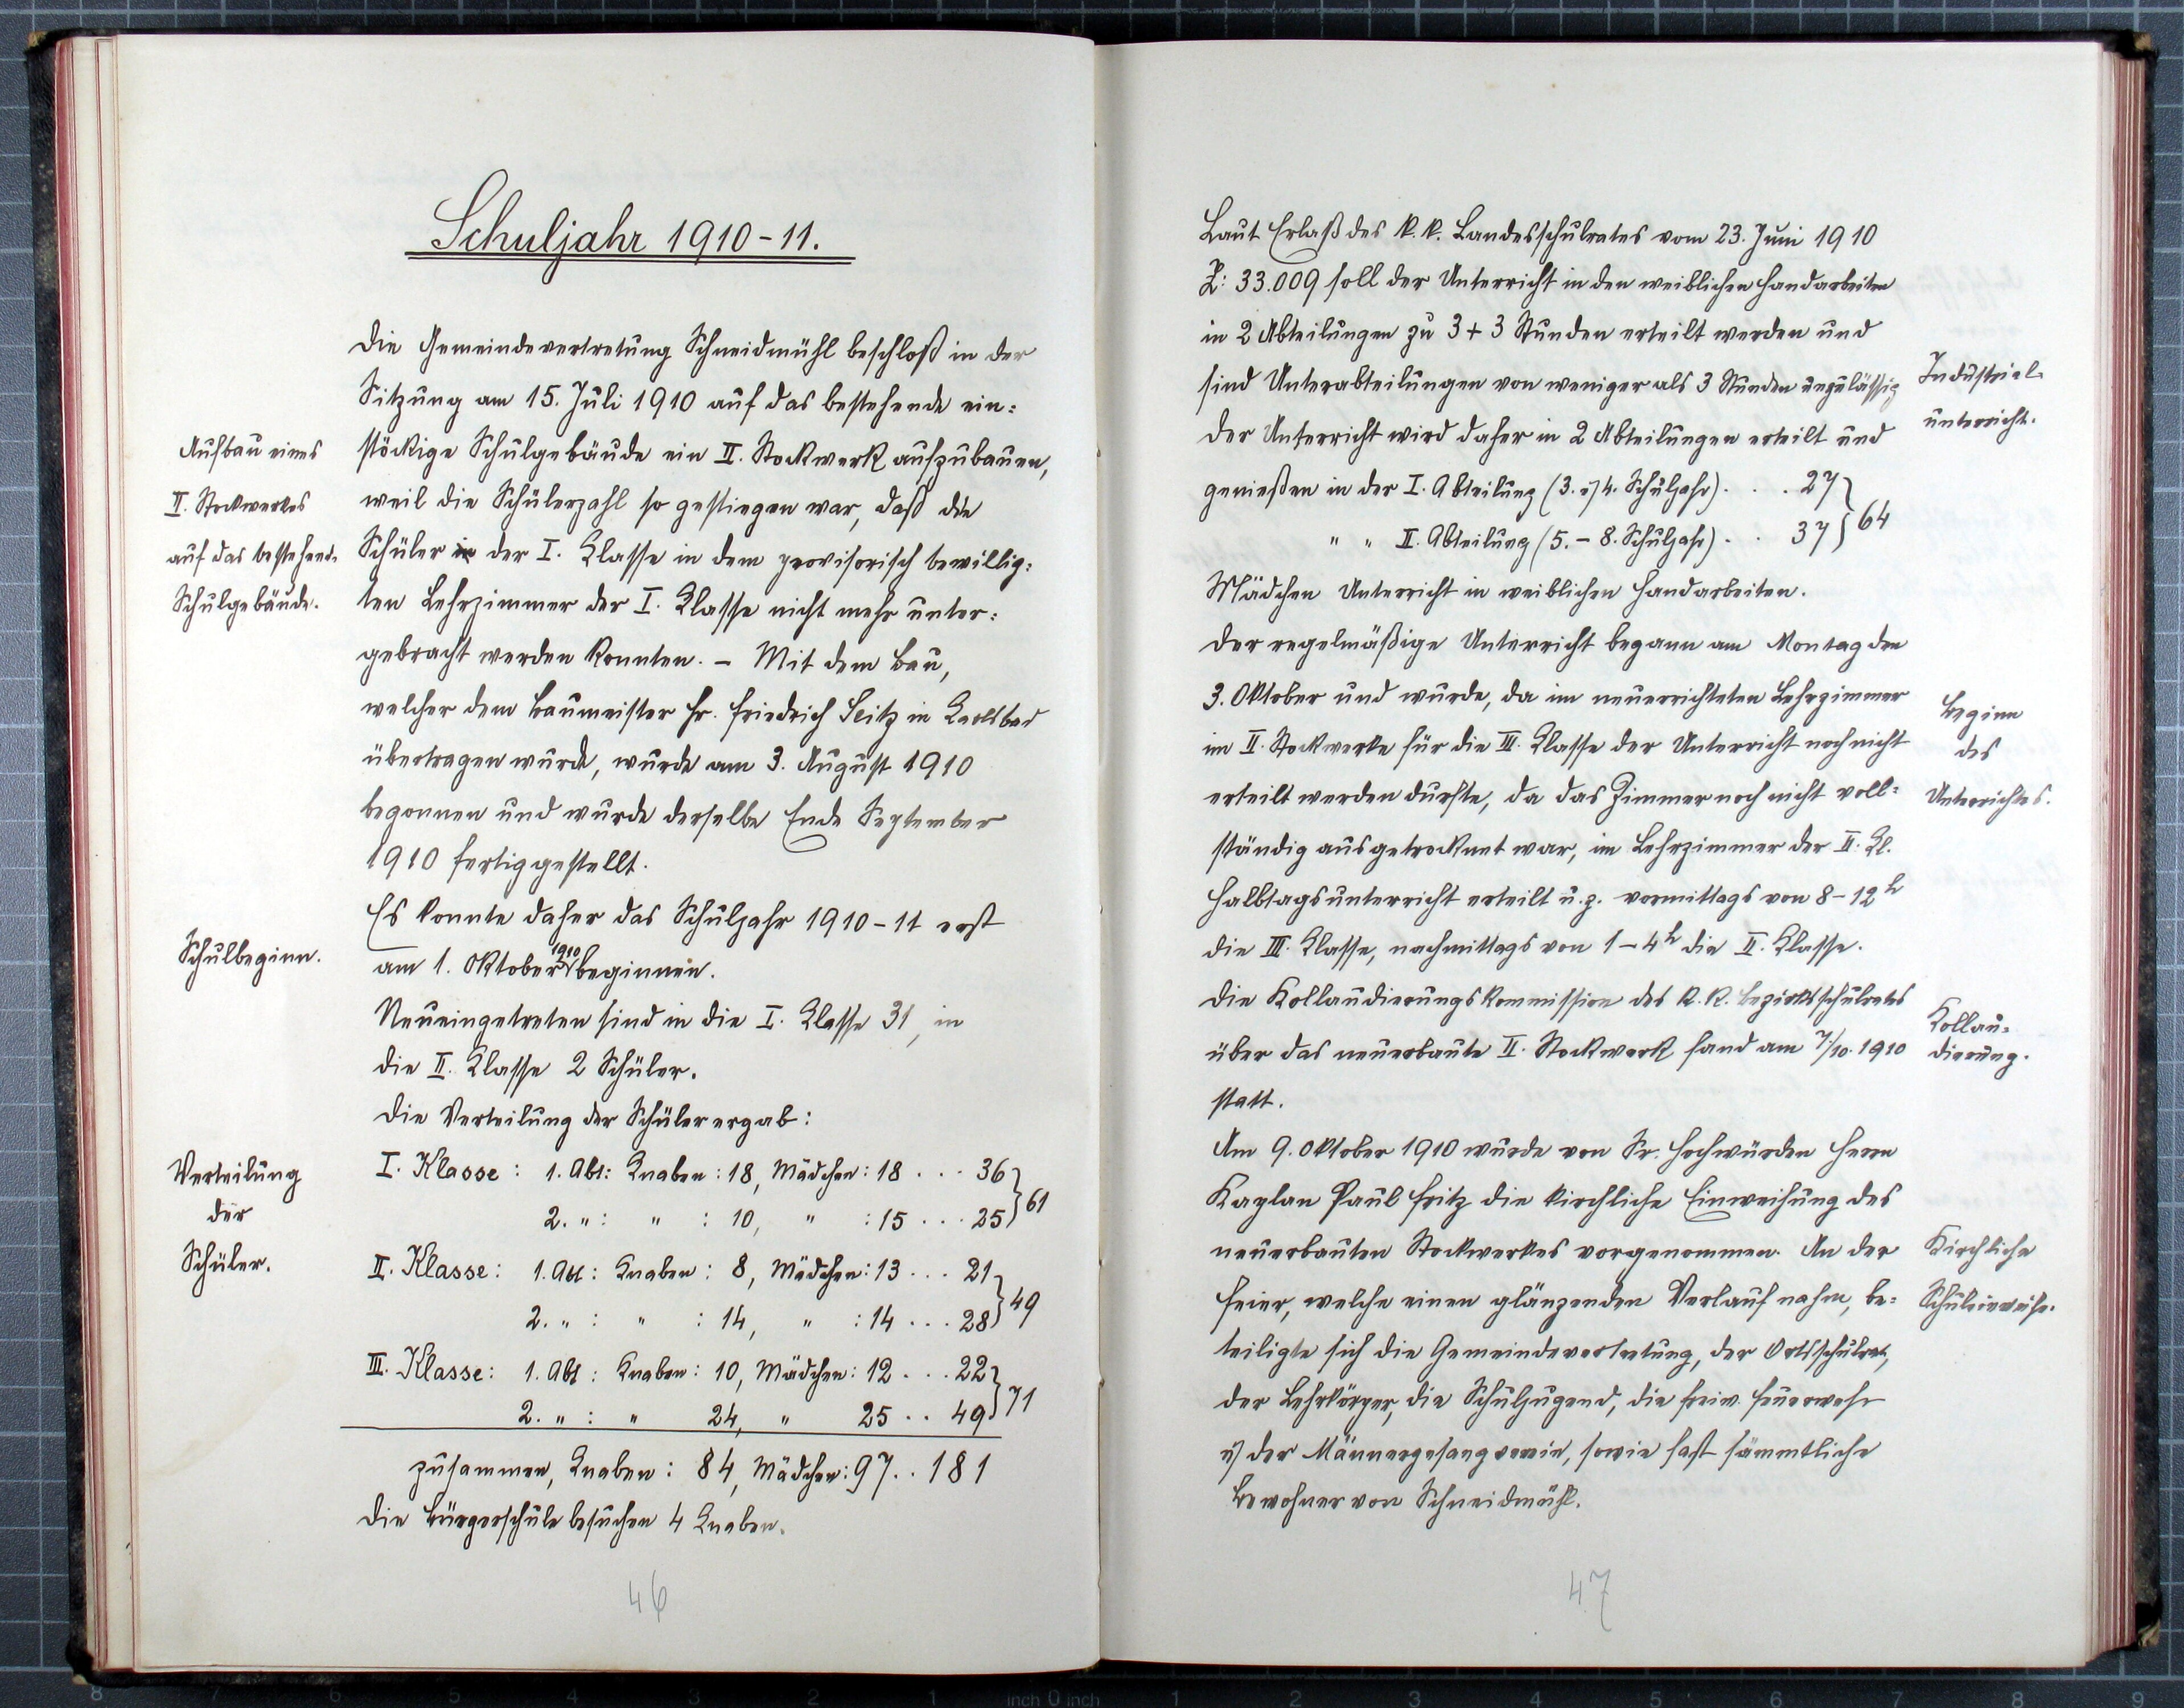 Schuljahr 1910-11.
Die Gemeindevertretung Schneidmühl beschloß in der
Sitzung am 15. Juli 1910 auf das bestehende ein-
Aufbau eines
stöckige Schulgebäude ein II. Stockwerk aufzubauen,
II. Stockwerkes
weil die Schülerzahl so gestiegen war, daß die
auf das bestehend.
Schüler in der I. Klasse in dem provisorisch bewillig-
Schulgebäude.
ten Lehrzimmer der I. Klasse nicht mehr unter-
gebracht werden konnten. – Mit dem Bau,
welcher dem Baumeister Hr. Friedrich Seitz in Karlsbad
übertragen wurde, wurde am 3. August 1910
begonnen und wurde derselbe Ende September
1910 fertiggestellt.
Es konnte daher das Schuljahr 1910-11 erst
Schulbeginn.
am 1. Oktober 1910 beginnen.
Neueingetreten sind in die I. Klasse 31, in
die II. Klasse 2 Schüler.
Die Verteilung der Schüler ergab:
Verteilung
der
Schüler.
I. Klasse: 1. Abt: Knaben: 18, Mädchen: 18 ... 36 } 61
2. ": " : 10, " : 15 ... 25
II. Klasse: 1. Abt: Knaben: 8, Mädchen: 13 ... 21 } 49
2. " : " : 14, " : 14 ... 28
III. Klasse: 1. Abt: Knaben: 10, Mädchen: 12 ... 22 } 71
2. " : " 24, " 25 .. 49
zusammen, Knaben: 84, Mädchen: 97 .. 181
Die Bürgerschule besuchen 4 Knaben.
46
Laut Erlaß des k. k. Landesschulrates vom 23. Juni 1910
Z: 33.009 soll der Unterricht in den weiblichen Handarbeiten
in 2 Abteilungen zu 3 + 3 Stunden erteilt werden und
sind Unterabteilungen von weniger als 3 Stunden unzulässig
Industrial-
unterricht.
Der Unterricht wird daher in 2 Abteilungen erteilt und
genießen in der I. Abteilung (3. u 4. Schuljahr) . . . 27 } 64
" " II. Abteilung (5. – 8. Schuljahr) . . 37
Mädchen Unterricht in weiblichen Handarbeiten.
Der regelmäßige Unterricht begann am Montag den
3. Oktober und wurde, da im neuerrichteten Lehrzimmer
Beginn
des
Unterrichtes.
im II. Stockwerke für die III. Klasse der Unterricht noch nicht
erteilt werden durfte, da das Zimmer noch nicht voll-
ständig ausgetrocknet war, im Lehrzimmer der II. Kl.
Halbtagsunterricht erteilt u. z. vormittags von 8 – 12 h
die III. Klasse, nachmittags von 1 – 4 h die II. Klasse.
Die Kollaudierungskommission des k. k. Bezirksschulrates
Kollau-
dierung.
über das neuerbaute II. Stockwerk fand am 7./10. 1910
statt.
Am 9. Oktober 1910 wurde von Sr. Hochwürden Herrn
Kaplan Paul Fritz die kirchliche Einweihung des
neuerbauten Stockwerkes vorgenommen. An der
Kirchliche
Schuleinweihe.
Feier, welche einen glänzenden Verlauf nahm, be-
teiligte sich die Gemeindevertretung, der Ortsschulrat,
der Lehrkörper, die Schuljugend, die freiw. Feuerwehr
u der Männergesangverein, sowie fast sämmtliche
Bewohner von Schneidmühl.
47
8 7 6 5 4 3 2 1 inch 0 inch 1 2 3 4 5 6 7 8 9